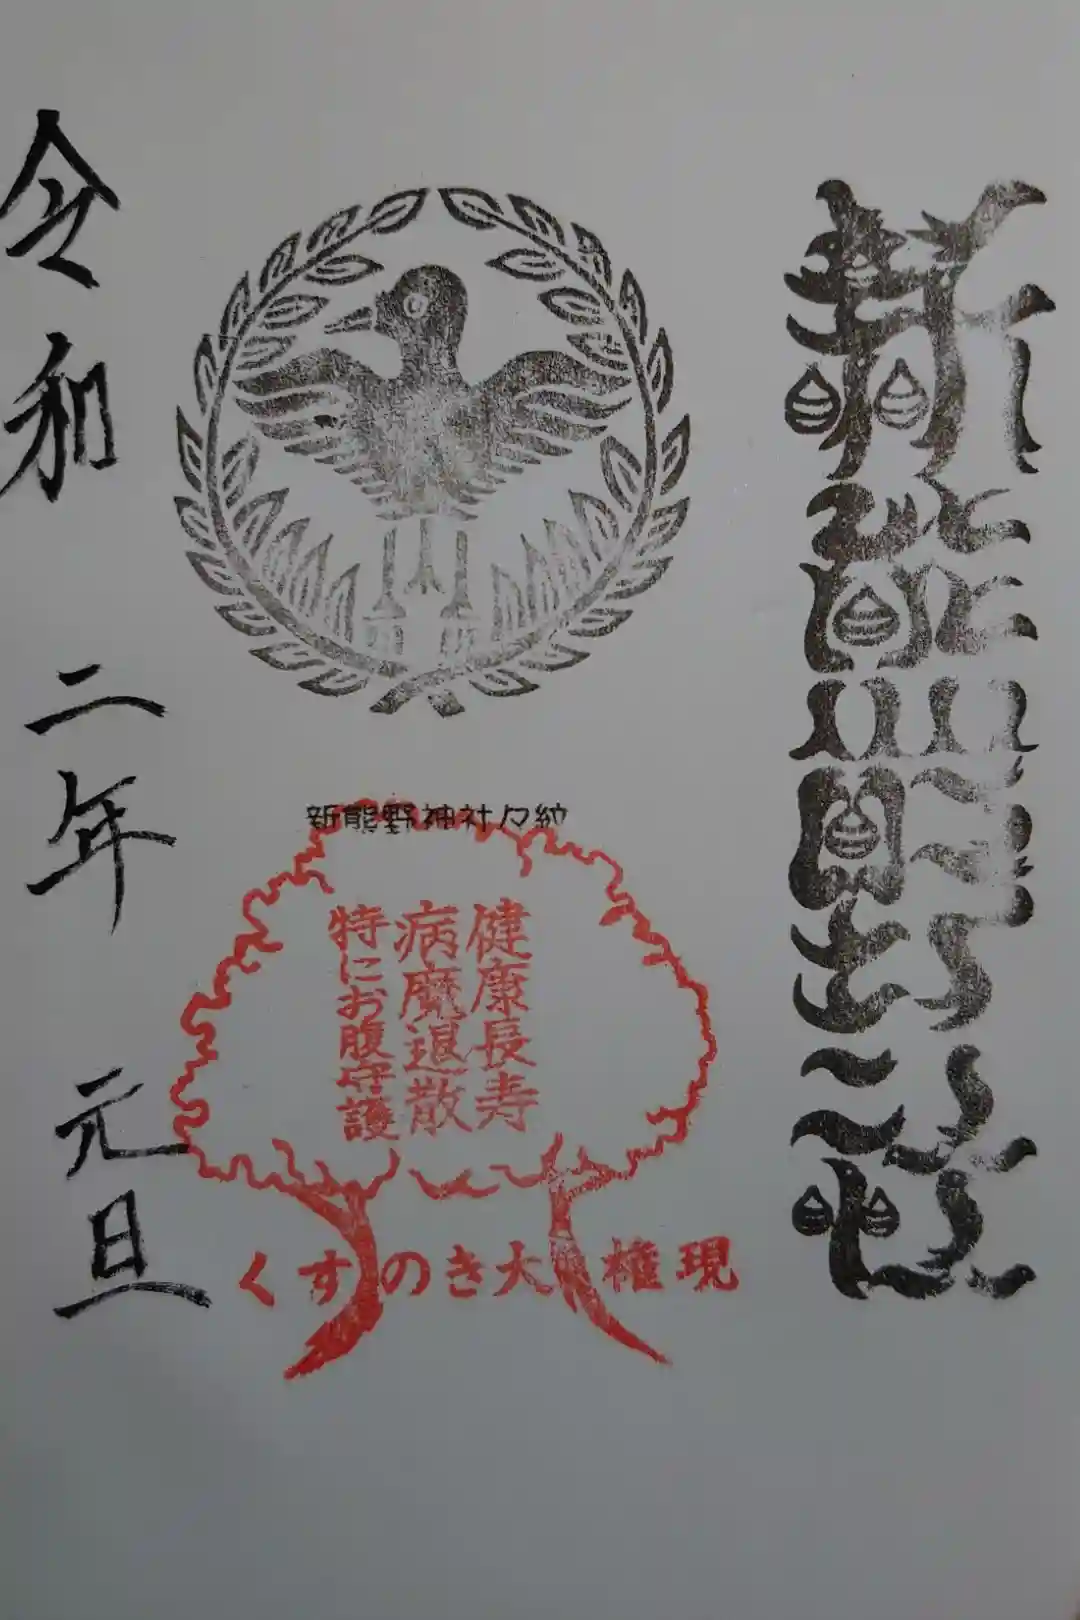 新熊野神社
新熊野神社々紋
健康長寿
病魔退散
特にお腹守護
くすのき大権現
令和二年 元旦